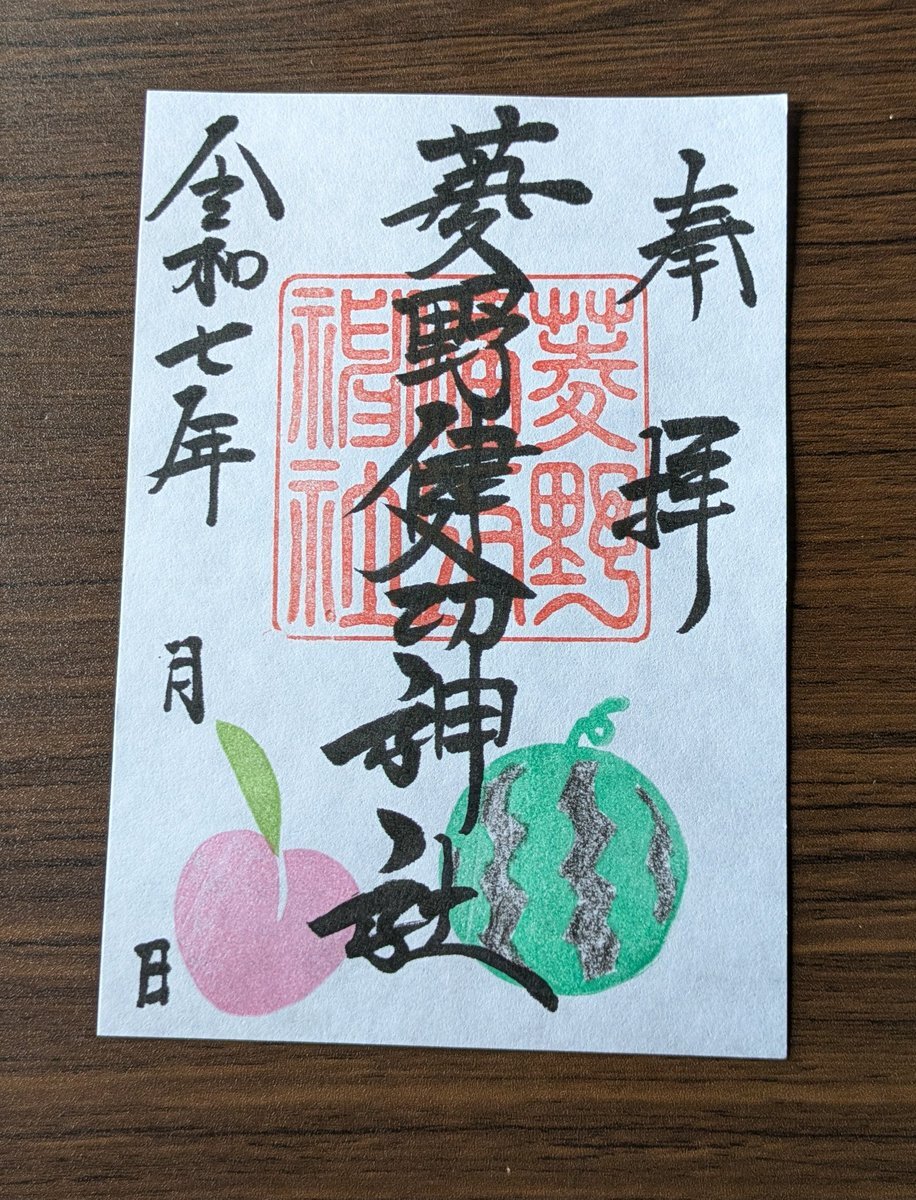 奉拝
菱野健功神社
令和七年 月 日
菱野
神社